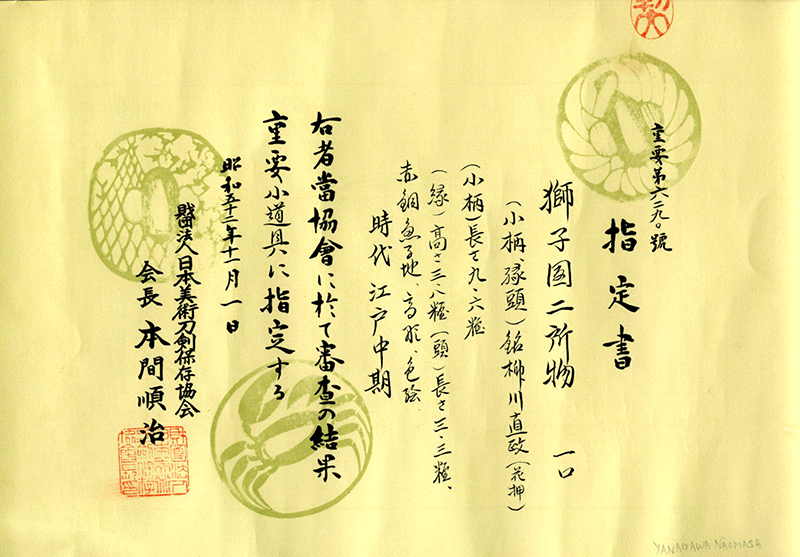 重要第六三九〇號
指定書
獅子図二所物 一口
(小柄、縁頭)銘柳川直政(花押)
(小柄)長さ九・六糎
(縁)高さ三・八糎(頭)長さ三・三糎、
赤銅魚子地、高彫、色絵
時代 江戸中期
右者當協會に於て審査の結果
重要小道具に指定する
昭和五十三年十一月一日
財団法人日本美術刀剣保存協会
会長 本間順治
YANAGAWA NAOMASA